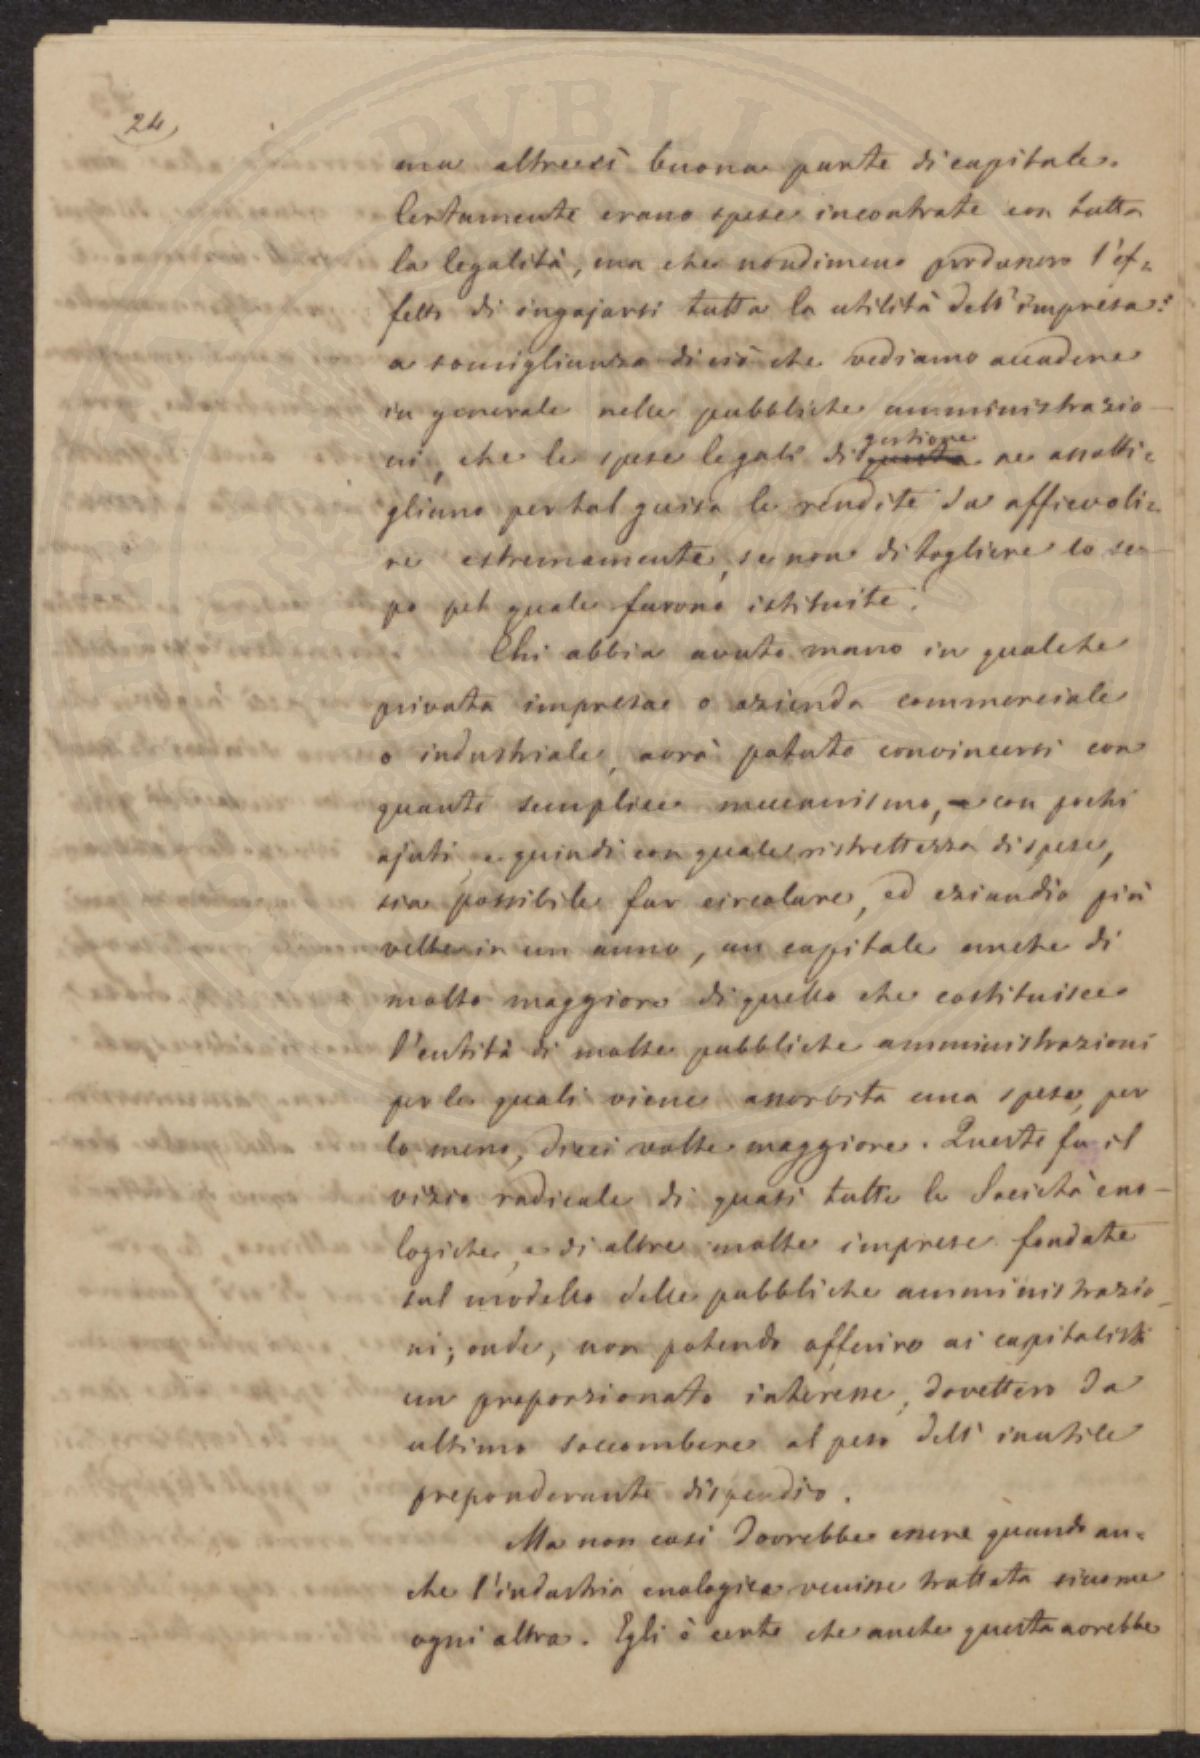 24,
ma altresì buona parte di capitale.
Certamente erano spese incontrate con tutta
la legalità, ma che nondimeno produssero l'ef=
fetto di ingojarsi tutta la utilità dell'impresa:
a somiglianza di ciò che vediamo accadere
in generale nelle pubbliche amministrazio-
ni, che le spese legali di gestione ne assotti=
gliano per tal guisa le rendite da affievoli=
re estremamente, se non di togliere lo sco-
po pel quale furono istituite.
Chi abbia avuto mano in qualche
privata impresa o azienda commerciale
o industriale, avrà potuto convincersi con
quanto semplice meccanismo, e con pochi
ajuti, e quindi con quale ristrettezza di spese,
sia possibile far circolare, ed eziandio più
volte in un anno, un capitale anche di
molto maggiore di quello che costituisce
l'entità di molte pubbliche amministrazioni
per le quali viene assorbita una spesa, per
lo meno, dieci volte maggiore. Questo fu il
vizio radicale di quasi tutte le Società eno-
logiche, e di altre molte imprese fondate
sul modello delle pubbliche amministrazio-
ni; onde, non potendo offerire ai capitalisti
un proporzionato interesse, dovettero da
ultimo soccombere al peso dell'inutile
preponderante dispendio.
Ma non così dovrebbe essere quando an=
che l'industria enologica venisse trattata siccome
ogni altra. Egli è certo che anche questa avrebbe